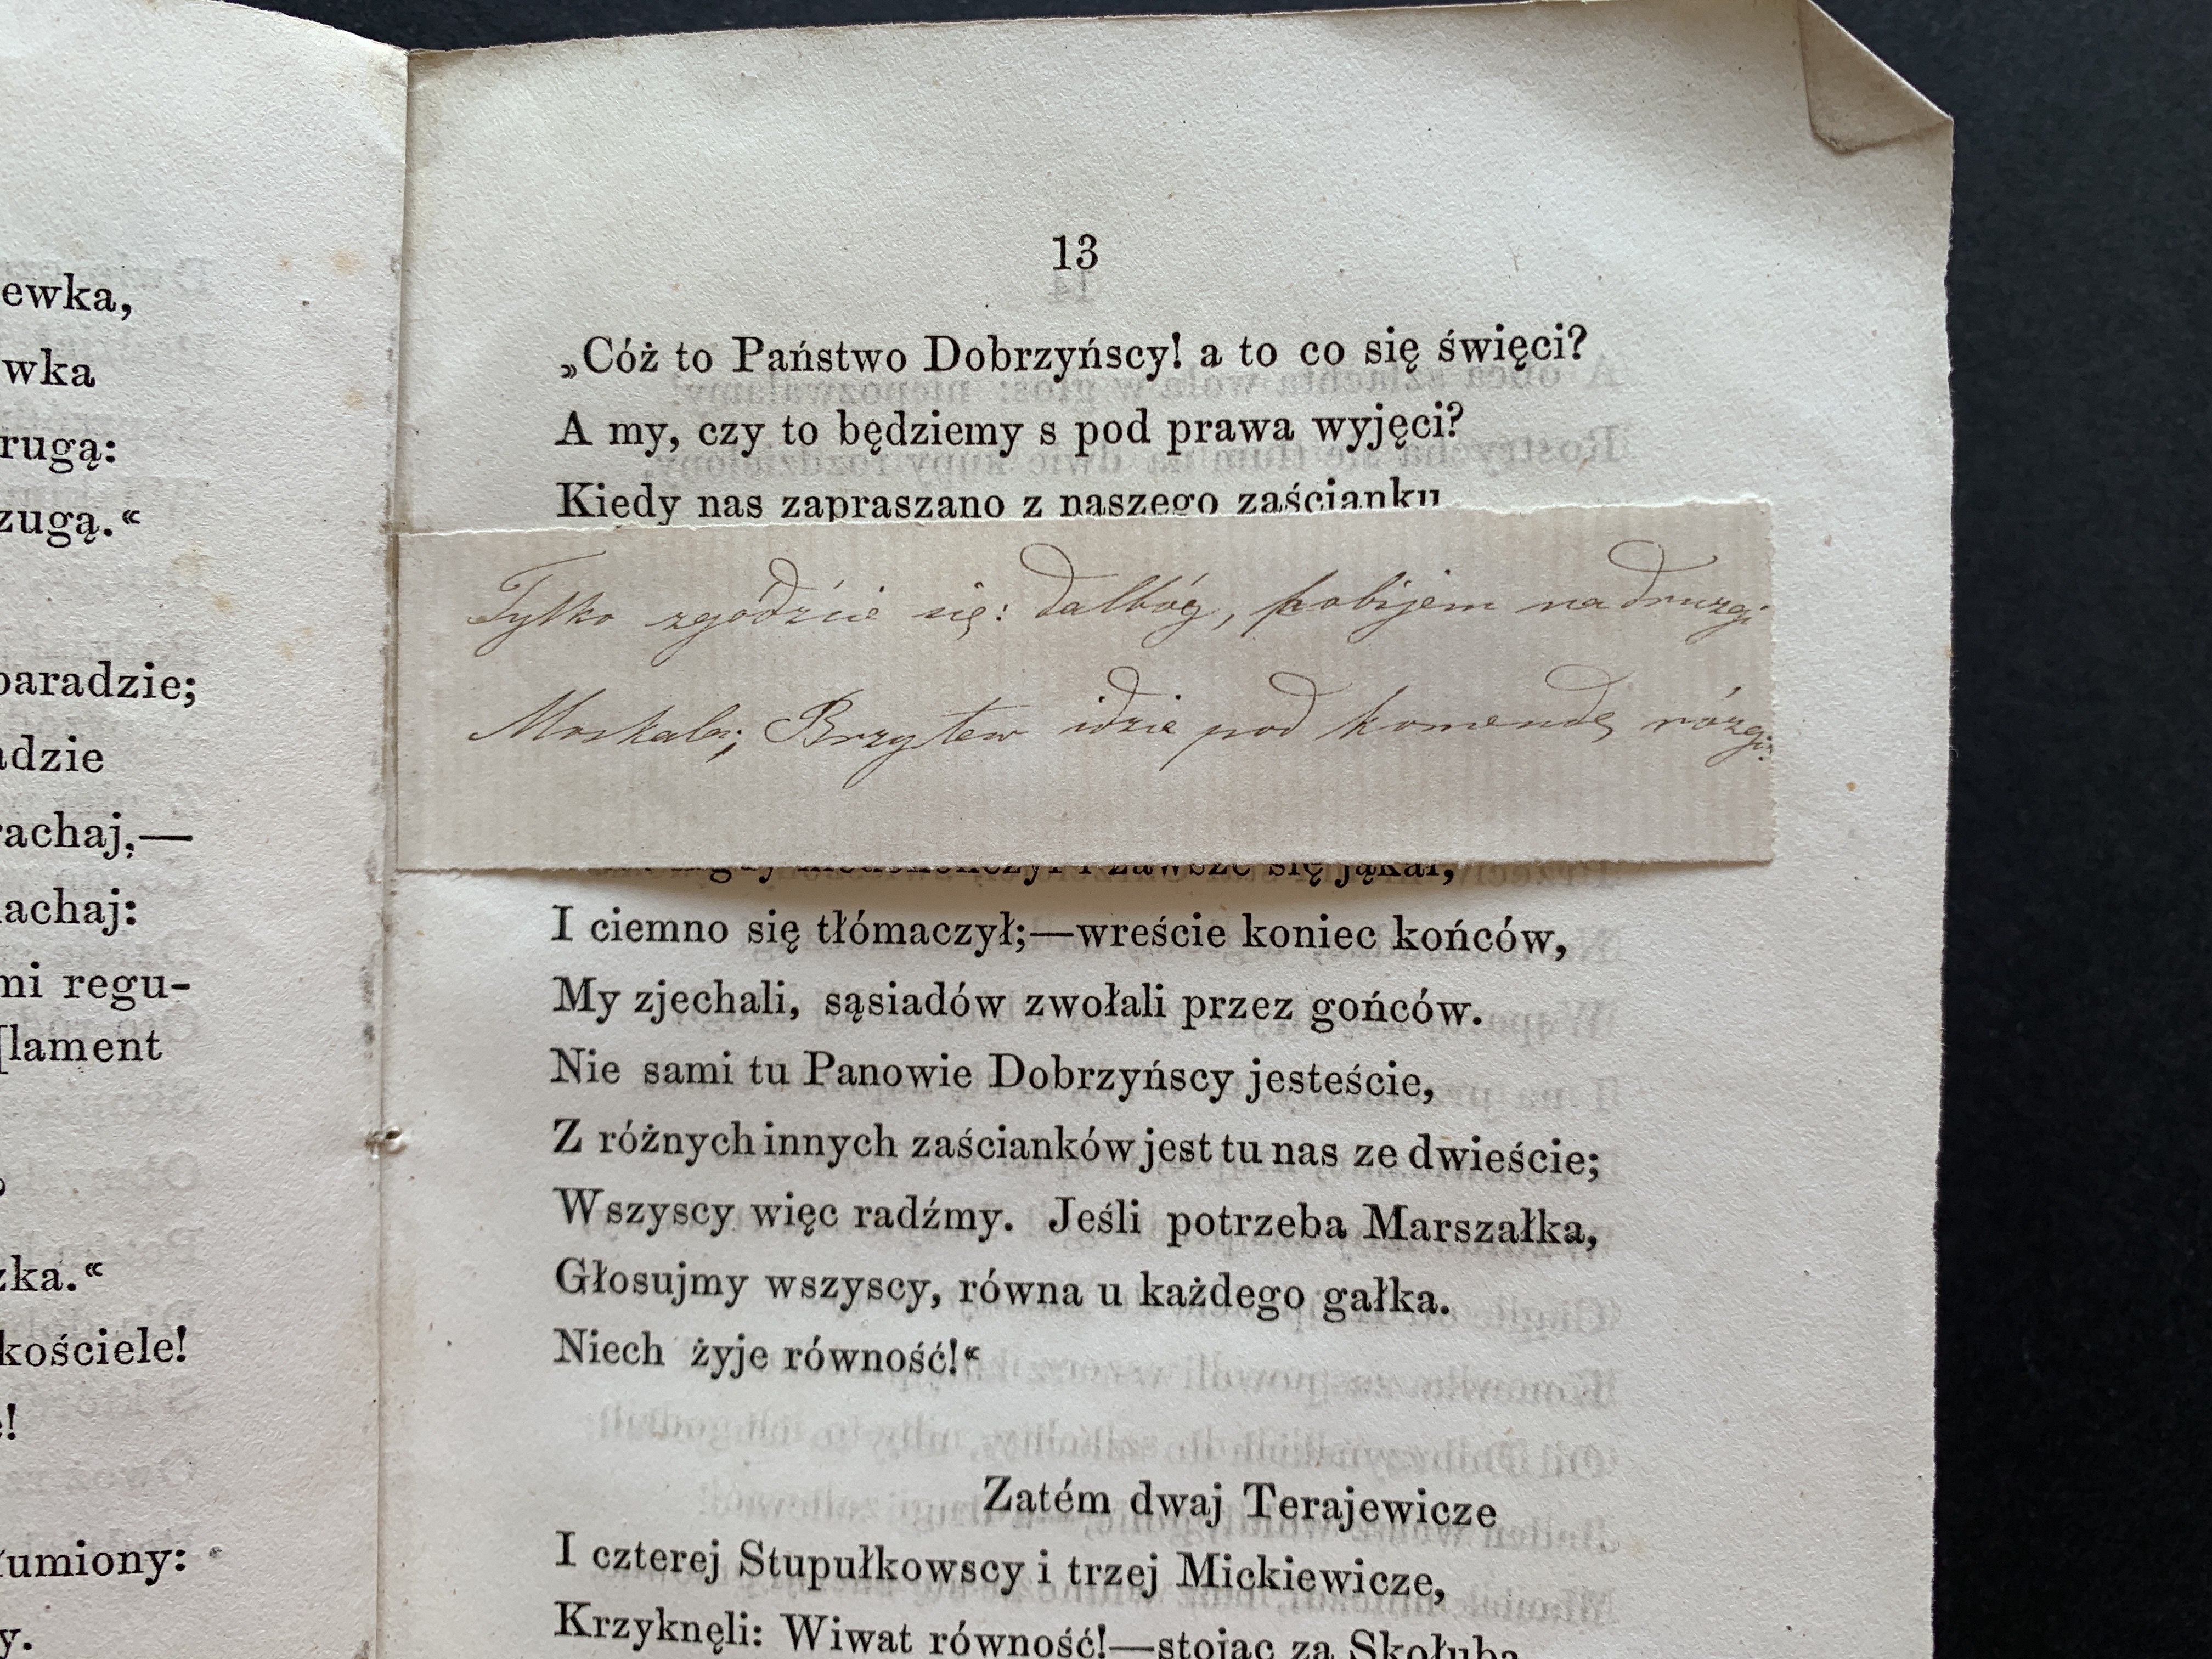 ewka,
wka
rugą:
zugą.“
paradzie;
adzie
rachaj,—
achaj:
mi regu-
[lament
zka.“
kościele!
e!
umiony:
y.
13
„Cóż to Państwo Dobrzyńscy! a to co się święci?
A my, czy to będziemy s pod prawa wyjęci?
Kiedy nas zapraszano z naszego zaścianku
Tylko zgódźcie się: dalbóg, pobijem na druzgi
Moskalą; Brzytew idzie pod komendę rózgi:
zawsze się jąkał,
I ciemno się tłómaczył;—wreście koniec końców,
My zjechali, sąsiadów zwołali przez gońców.
Nie sami tu Panowie Dobrzyńscy jesteście,
Z różnych innych zaścianków jest tu nas ze dwieście;
Wszyscy więc radźmy. Jeśli potrzeba Marszałka,
Głosujmy wszyscy, równa u każdego gałka.
Niech żyje równość!“
Zatém dwaj Terajewicze
I czterej Stupułkowscy i trzej Mickiewicze,
Krzyknęli: Wiwat równość!—stojąc za Skołubą